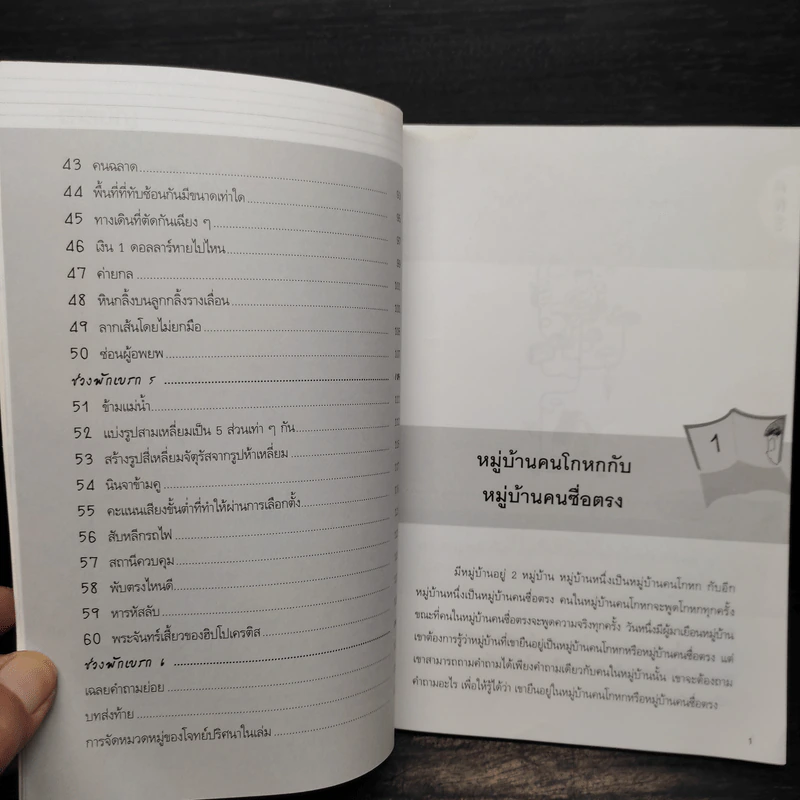 43 คนฉลาด
44 พื้นที่ที่ทับซ้อนกันมีขนาดเท่าใด
45 ทางเดินที่ตัดกันเฉียง ๆ
46 เงิน 1 ดอลลาร์หายไปไหน
47 ค่ายกล
48 หินกลิ้งบนลูกกลิ้งรางเลื่อน
49 ลากเส้นโดยไม่ยกมือ
50 ซ่อนผู้อพยพ
ช่วงพักเบรก 5
51 ข้ามแม่น้ำ
52 แบ่งรูปสามเหลี่ยมเป็น 5 ส่วนเท่า ๆ กัน
53 สร้างรูปสี่เหลี่ยมจัตุรัสจากรูปห้าเหลี่ยม
54 นินจาข้ามคู
55 คะแนนเสียงขั้นต่ำที่ทำให้ผ่านการเลือกตั้ง
56 สับหลีกรถไฟ
57 สถานีควบคุม
58 พับตรงไหนดี
59 หารหัสลับ
60 พระจันทร์เสี้ยวของฮิปโปเครติส
ช่วงพักเบรก 6
เฉลยคำถามย่อย
บทส่งท้าย
การจัดหมวดหมู่ของโจทย์ปริศนาในเล่ม
1
หมู่บ้านคนโกหกกับ
หมู่บ้านคนซื่อตรง
มีหมู่บ้านอยู่ 2 หมู่บ้าน หมู่บ้านหนึ่งเป็นหมู่บ้านคนโกหก กับอีก
หมู่บ้านหนึ่งเป็นหมู่บ้านคนซื่อตรง คนในหมู่บ้านคนโกหกจะพูดโกหกทุกครั้ง
ขณะที่คนในหมู่บ้านคนซื่อตรงจะพูดความจริงทุกครั้ง วันหนึ่งมีผู้มาเยือนหมู่บ้าน
เขาต้องการรู้ว่าหมู่บ้านที่เขายืนอยู่เป็นหมู่บ้านคนโกหกหรือหมู่บ้านคนซื่อตรง แต่
เขาสามารถถามคำถามได้เพียงคำถามเดียวกับคนในหมู่บ้านนั้น เขาจะต้องถาม
คำถามอะไร เพื่อให้รู้ได้ว่า เขายืนอยู่ในหมู่บ้านคนโกหกหรือหมู่บ้านคนซื่อตรง
1